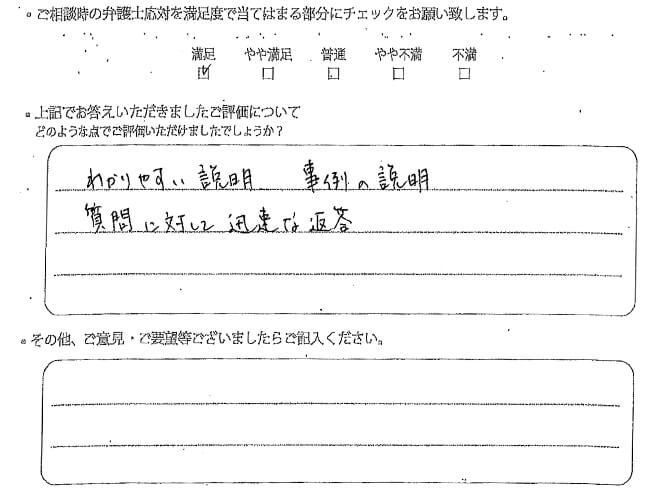 。ご相談時の弁護士応対を満足度で当てはまる部分にチェックをお願い致します。
満足 やや満足 普通 やや不満 不満
☑ □ □ □ □
。上記でお答えいただきましたご評価について
どのような点でご評価いただけましたでしょうか?
わかりやすい説明 事例の説明
質問に対して迅速な返答
。その他、ご意見・ご要望等ございましたらご記入ください。